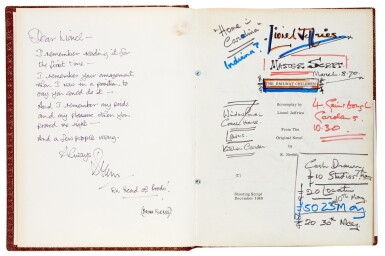 Dear Lionel -
I remember reading it for
the first time -
I remember your amazement
when I was in a position to
say you could do it -
And I remember my pride
and my pleasure when you
proved me right -
And a few people wrong -
Always!
Bryan
Ex. Head of Prods!
"Home in
Carolina"
Indiana?
Lionel Jeffries
MASTER SCRIPT
March. 8. 70.
THE RAILWAY CHILDREN
Screenplay by
Lionel Jeffries
From The
Original Novel
by
E. Nesbit
4 Gainsborough
Gardens.
10-30.
Cash Drawn
£10 Studios 7th May
£20 Location
10th May
£50 23 May
£20 30th May
Shooting Script
December 1969